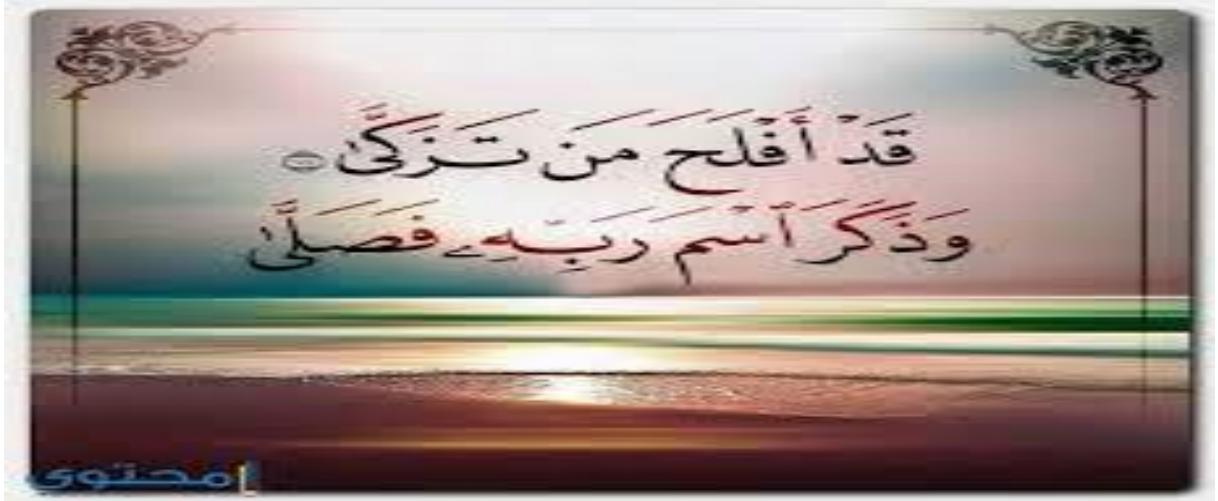 قَدْ أَفْلَحَ مَن تَزَكَّىٰ
وَذَكَرَ ٱسْمَ رَبِّهِۦ فَصَلَّىٰ
محتوى